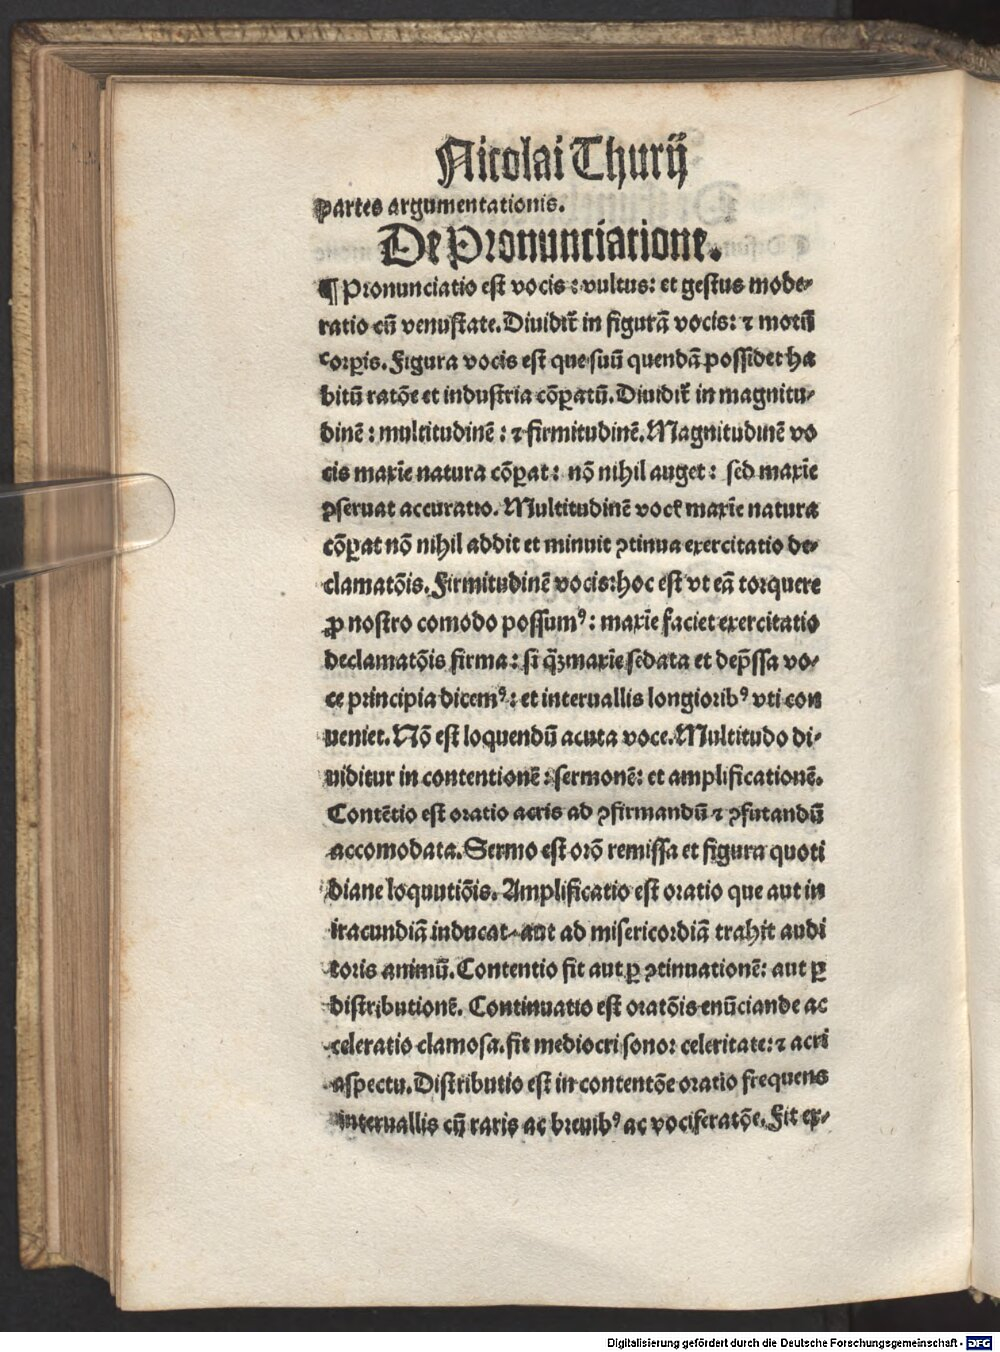 Nicolai Thurij
partes argumentationis.
De Pronuntiatione.
¶ Pronunciatio est vocis : vultus: et gestus mode-
ratio cū venustate. Diuidit᷑ in figurā vocis: ⁊ motū
corꝑis. Figura vocis est que suū quendā possidet ha
bitū ratōe et industria cōꝑatū. Diuidit᷑ in magnitu-
dinē : multitudinē : ⁊ firmitudinē. Magnitudinē vo
cis maxīe natura cōꝑat : nō nihil auget : sed maxīe
ꝯseruat accuratio. Multitudinē vocꝭ maxīe natura
cōꝑat nō nihil addit et minuit ꝯtinua exercitatio de-
clamatōis. Firmitudinē vocis: hoc est vt eā torquere
ꝓ nostro comodo possumꝰ : maxīe faciet exercitatio
declamatōis firma : si q̄ꝫ maxīe sedata et dep̄ssa vo-
ce principia dicemꝰ : et interuallis longioribꝰ vti con
ueniet. Nō est loquendū acuta voce. Multitudo di-
uiditur in contentionē : sermonē: et amplificationē.
Contētio est oratio acris ad ꝯfirmandū ⁊ ꝯfutandū
accomodata. Sermo est orō remissa et figura quoti
diane loquutiōis. Amplificatio est oratio que aut in
iracundiā inducat aut ad misericordiā trahit audi
toris animū. Contentio fit aut ꝑ ꝯtinuationē: aut ꝑ
distributionē. Continuatio est oratōis enūciande ac
celeratio clamosa. fit mediocri sono: celeritate: ⁊ acri
aspectu. Distributio est in contentōe oratio frequens
interuallis cū raris ac breuibꝰ ac vociferatōe. Fit ex-
Digitalisierung gefördert durch die Deutsche Forschungsgemeinschaft - DFG